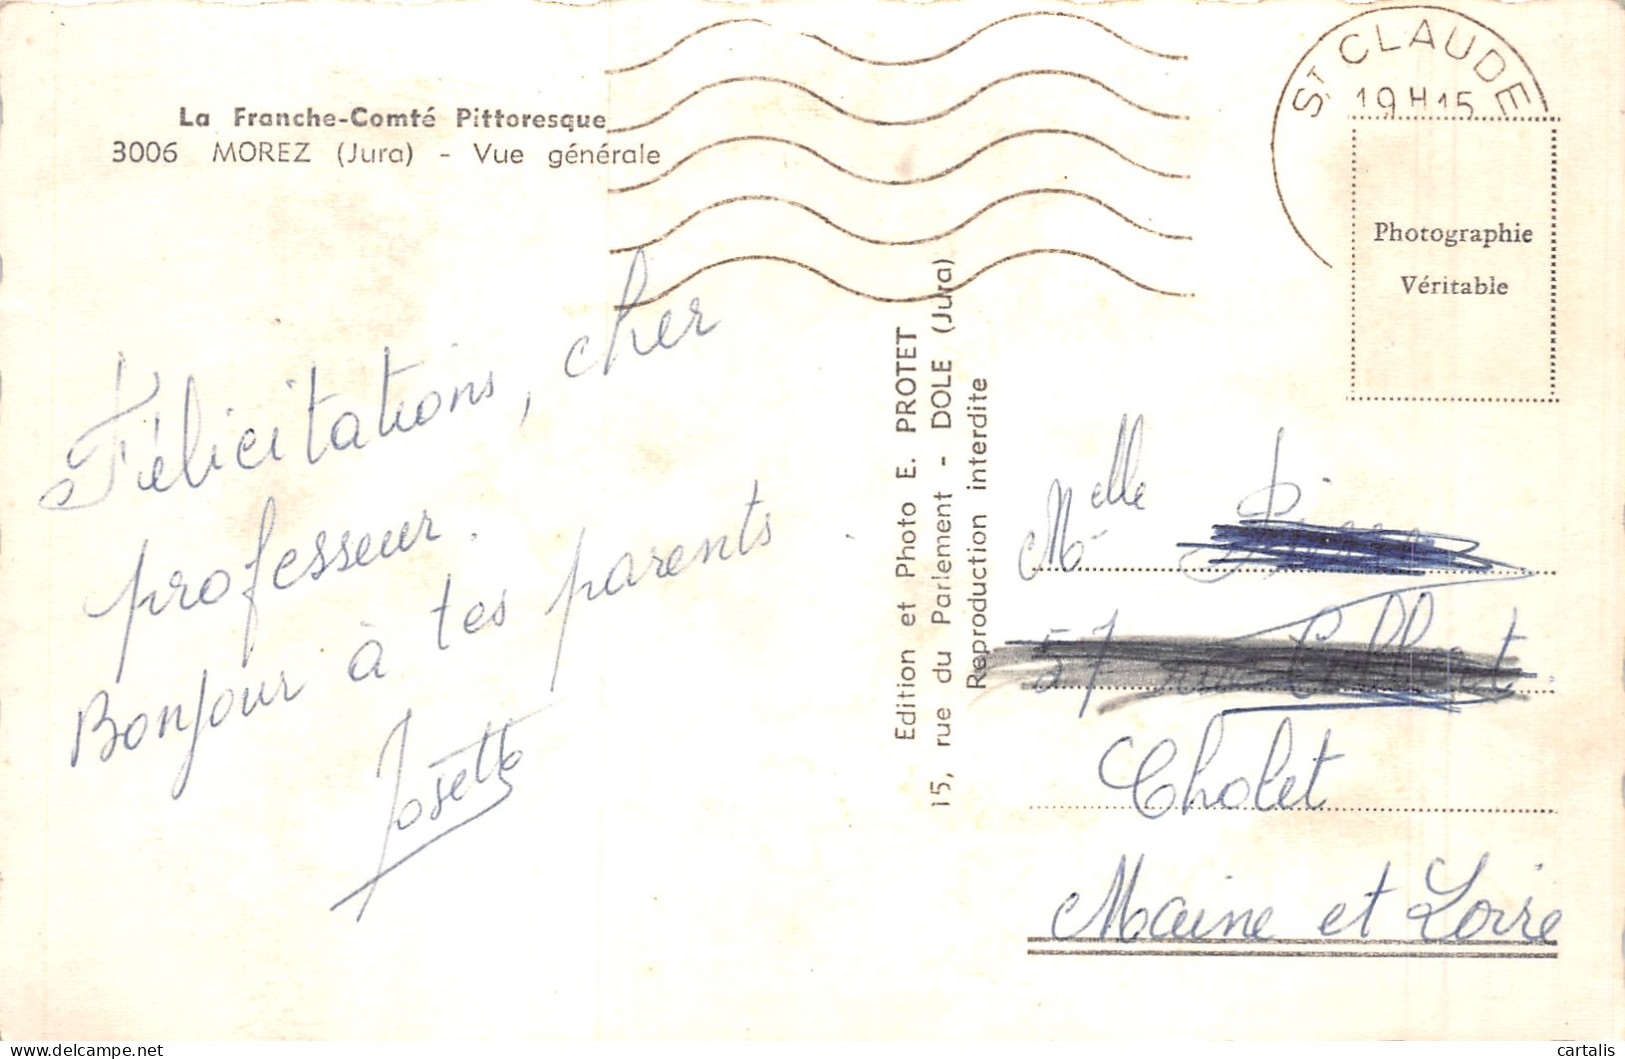 La Franche-Comté Pittoresque
3006 MOREZ (Jura) - Vue générale
Félicitations, cher
professeur.
Bonjour à tes parents.
Josette
Edition et Photo E. PROTET
15, rue du Parlement - DOLE (Jura)
Reproduction interdite
ST CLAUDE
19H15
Photographie
Véritable
Melle
57 rue
Cholet
Maine et Loire
delcampe.net
cartalis